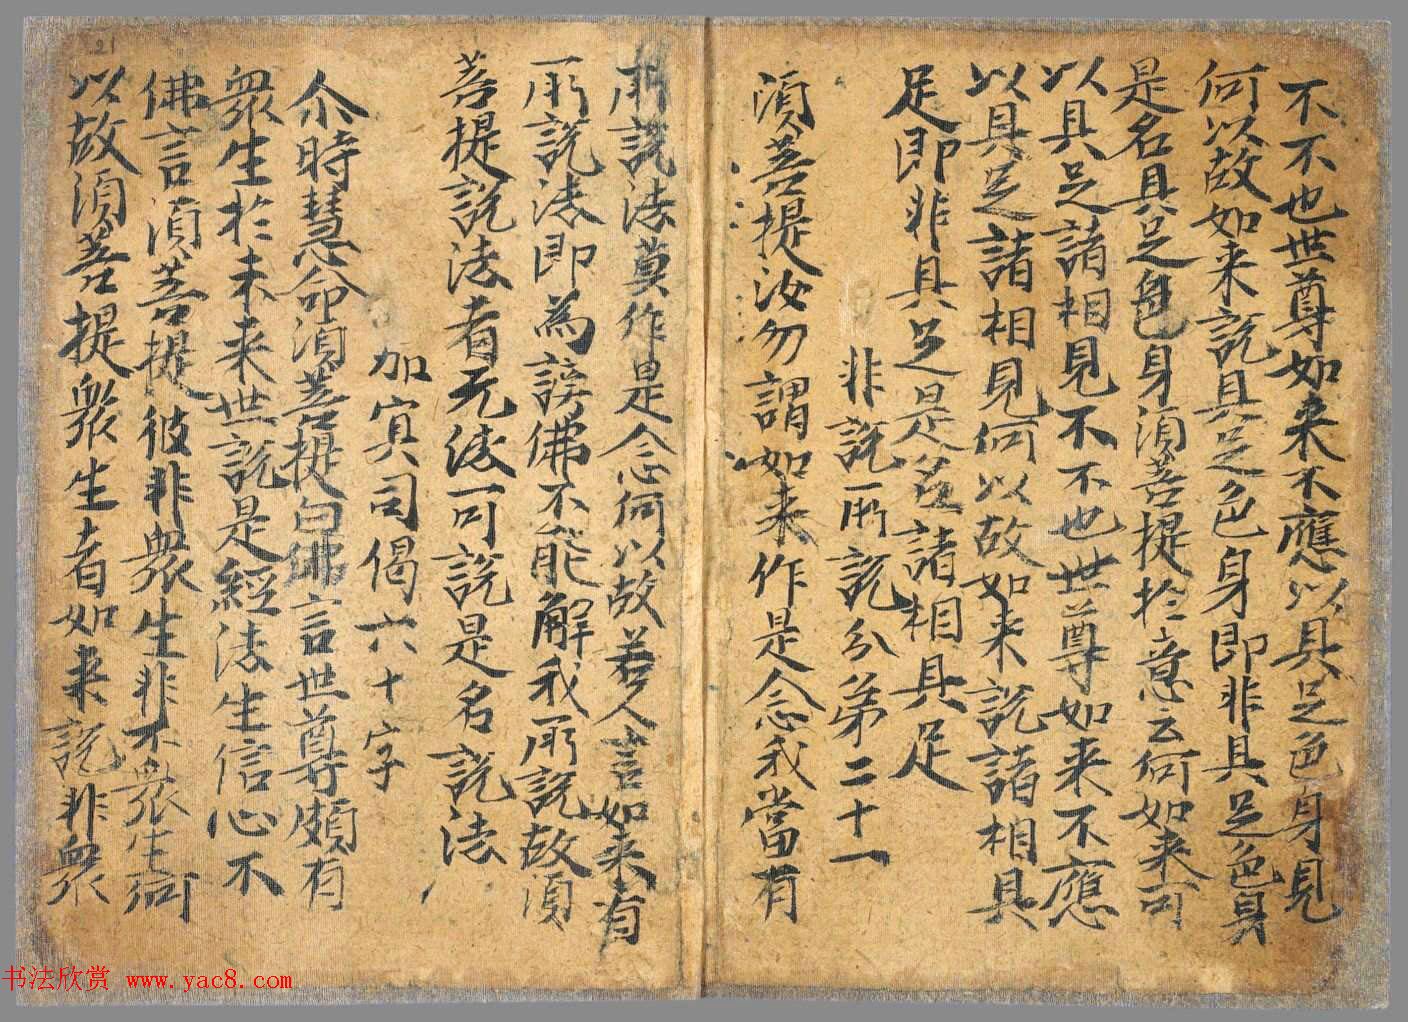 不不也世尊如来不應以具足色身見
何以故如来說具足色身即非具足色身
是名具足色身須菩提扵意云何如来可
以具足諸相見不不也世尊如来不應
以具足諸相見何以故如来說諸相具
足即非具足是名諸相具足
非說所說分第二十一
須菩提汝勿謂如来作是念我當有
所說法莫作是念何以故若人言如来有
所說法即為謗佛不能解我所說故須
菩提說法者无法可說是名說法
加冥司偈六十字
尒時慧命須菩提白佛言世尊頗有
衆生扵未来世說是經法生信心不
佛言須菩提彼非衆生非不衆生何
以故須菩提衆生者如来說非衆
21
书法欣赏 www.yac8.com